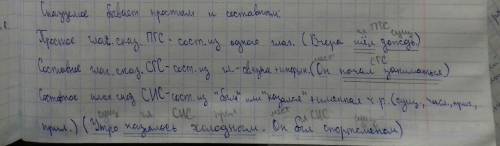 Сказуемое бывает простым и составным.
гл ПГС сущ
Простое глаг. сказ. ПГС - сост. из одного глаг. (Вчера шёл дождь)
мест СГС
Составное глаг. сказ. СГС - сост. из гл-связка + инфин. (Он начал заниматься)
Составное имен. сказ СИС - сост. из "был" или "казался" + именная ч р. (сущ, числ, прил,
сущ гл СИС прил мест гл СИС сущ
прил.) (Утро казалось холодным. Он был спортсменом)